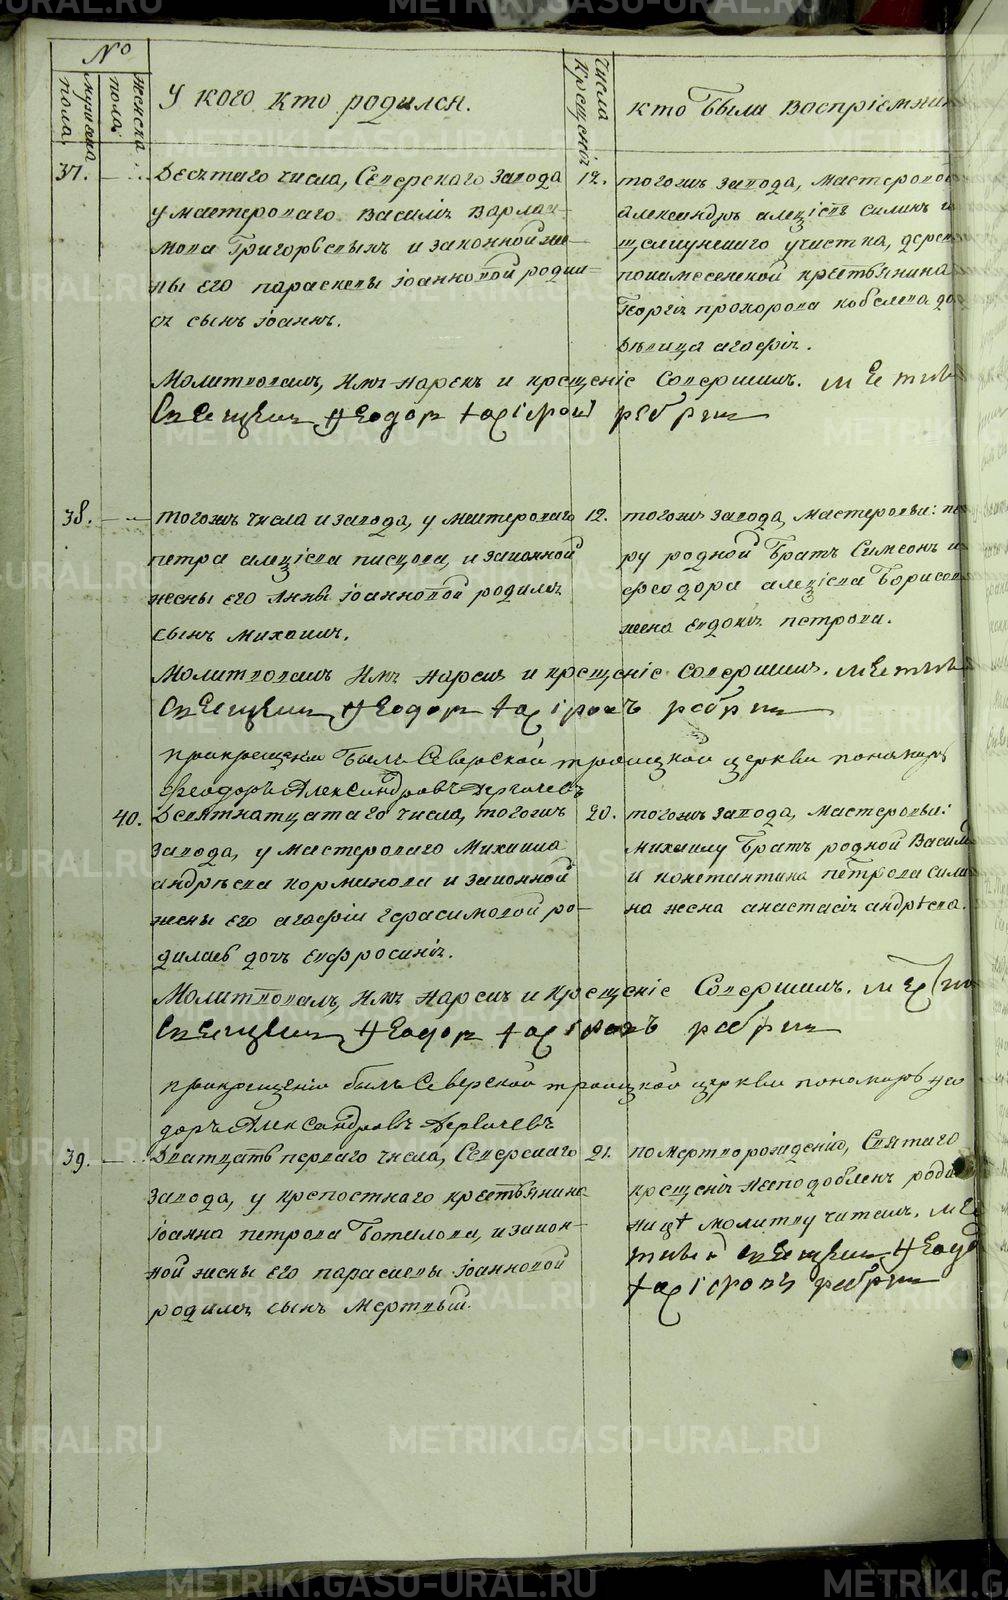 METRIKI.GASO-URAL.RU
№
мужеска пола.
женска пола.
У кого кто родился.
Числа Крещенія
кто были воспріемник
37.
Десятаго числа, Северскаго завода
у мастероваго Василія Варлаа-
мова Григорьевыхъ и законной же-
ны его параскевы Іоанновой родил-
ся сынъ Іоаннъ.
12.
тогожъ завода, мастеровой
александръ алеѯіевъ силинъ и
участка, дерев
крестьянина
Георгія прохорова кобелева до
дѣвица агафія.
Молитвовалъ, Имя нарекъ и крещеніе Совершилъ.
Священникъ Ѳеодоръ
38.
тогожъ числа и завода, у мастероваго
петра алеѯіева писцова, и законной
жены его Анны Іоанновой родился
сынъ михаилъ.
12.
тогожъ завода, мастеровые: пе
ру родной братъ Симеонъ и
феодора алеѯіева борисов
жена евдокія петрова.
Молитвовалъ Имя нарекъ и крещеніе совершилъ.
Священникъ Ѳеодоръ
прикрещеніи былъ Северской троицкой церкви пономарь
Феодоръ Александровъ Дергачевъ
40.
Девятнатцатаго числа, тогожъ
завода, у мастероваго Михаила
андрѣева кормакова и законной
жены его агафіи Герасимовой ро-
дилась дочь евфросинія.
20.
тогожъ завода, мастеровые:
михаилу братъ родной Васил
и константина петрова сили
на жена анастасія андрѣева.
Молитвовалъ, Имя нарекъ и крещеніе Совершилъ.
Священникъ Ѳеодоръ
прикрещеніи былъ Северской троицкой церкви пономарь Ѳео
доръ Александровъ Дергачевъ
39.
Дватцать перваго числа, Северскаго
завода, у крепостнаго крестьянина
Іоанна петрова ботилова, и закон-
ной жены его параскевы Іоанновой
родился сынъ мертвый.
21.
по мертворожденію, Святаго
крещенія неподобленъ роди
ницѣ молитву читалъ.
Священникъ Ѳеод